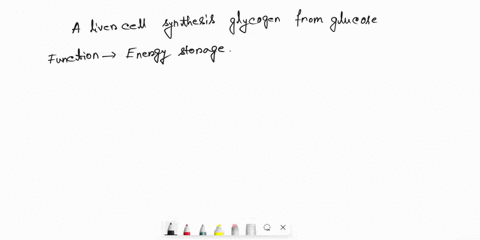 A liver cell synthesis glycogen from glucose
Function → Energy storage.